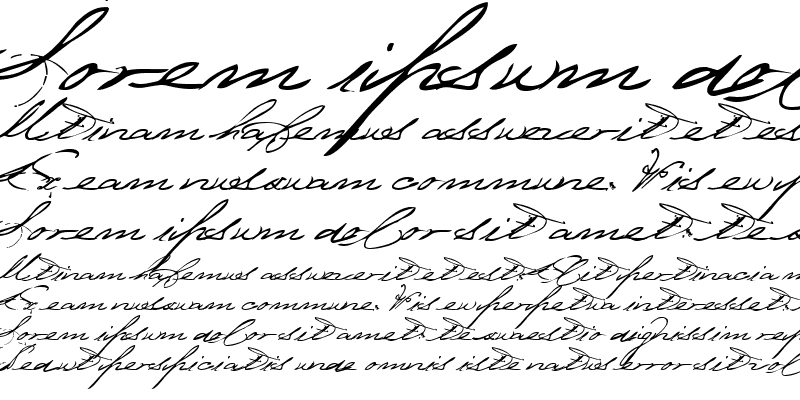 Lorem ipsum dol
Utinam habemus assueverit et est
Ex ea nam nusquam commune. Vis eu p
Lorem ipsum dolor sit amet. te
Utinam habemus assueverit et est. Elit pertinacia n
Ex ea nam nusquam commune. Vis eu perpetua interesset.
Lorem ipsum dolor sit amet. te quaestio dignissim rep
Sed ut perspiciatis unde omnis iste natus error sit vol